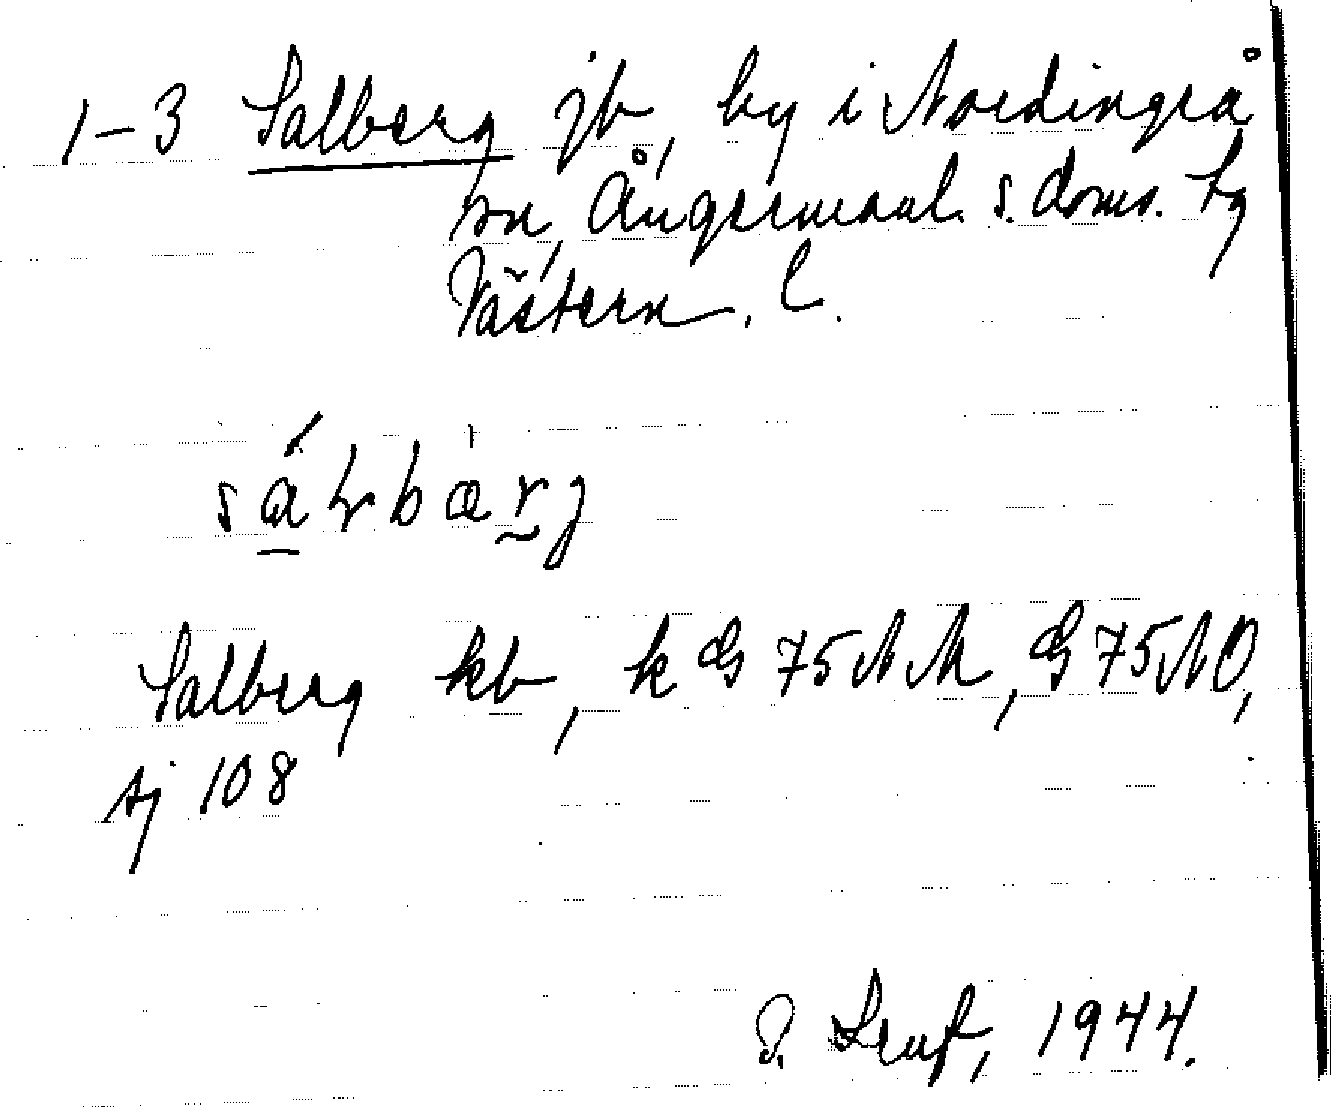 1-3 Salberg jb, by i Nordingrå
sn, Ångermanl. s. doms. tg
Västern. l.
Salberg kb, k G 75 NM, G 75 NO,
sj 108
1944.